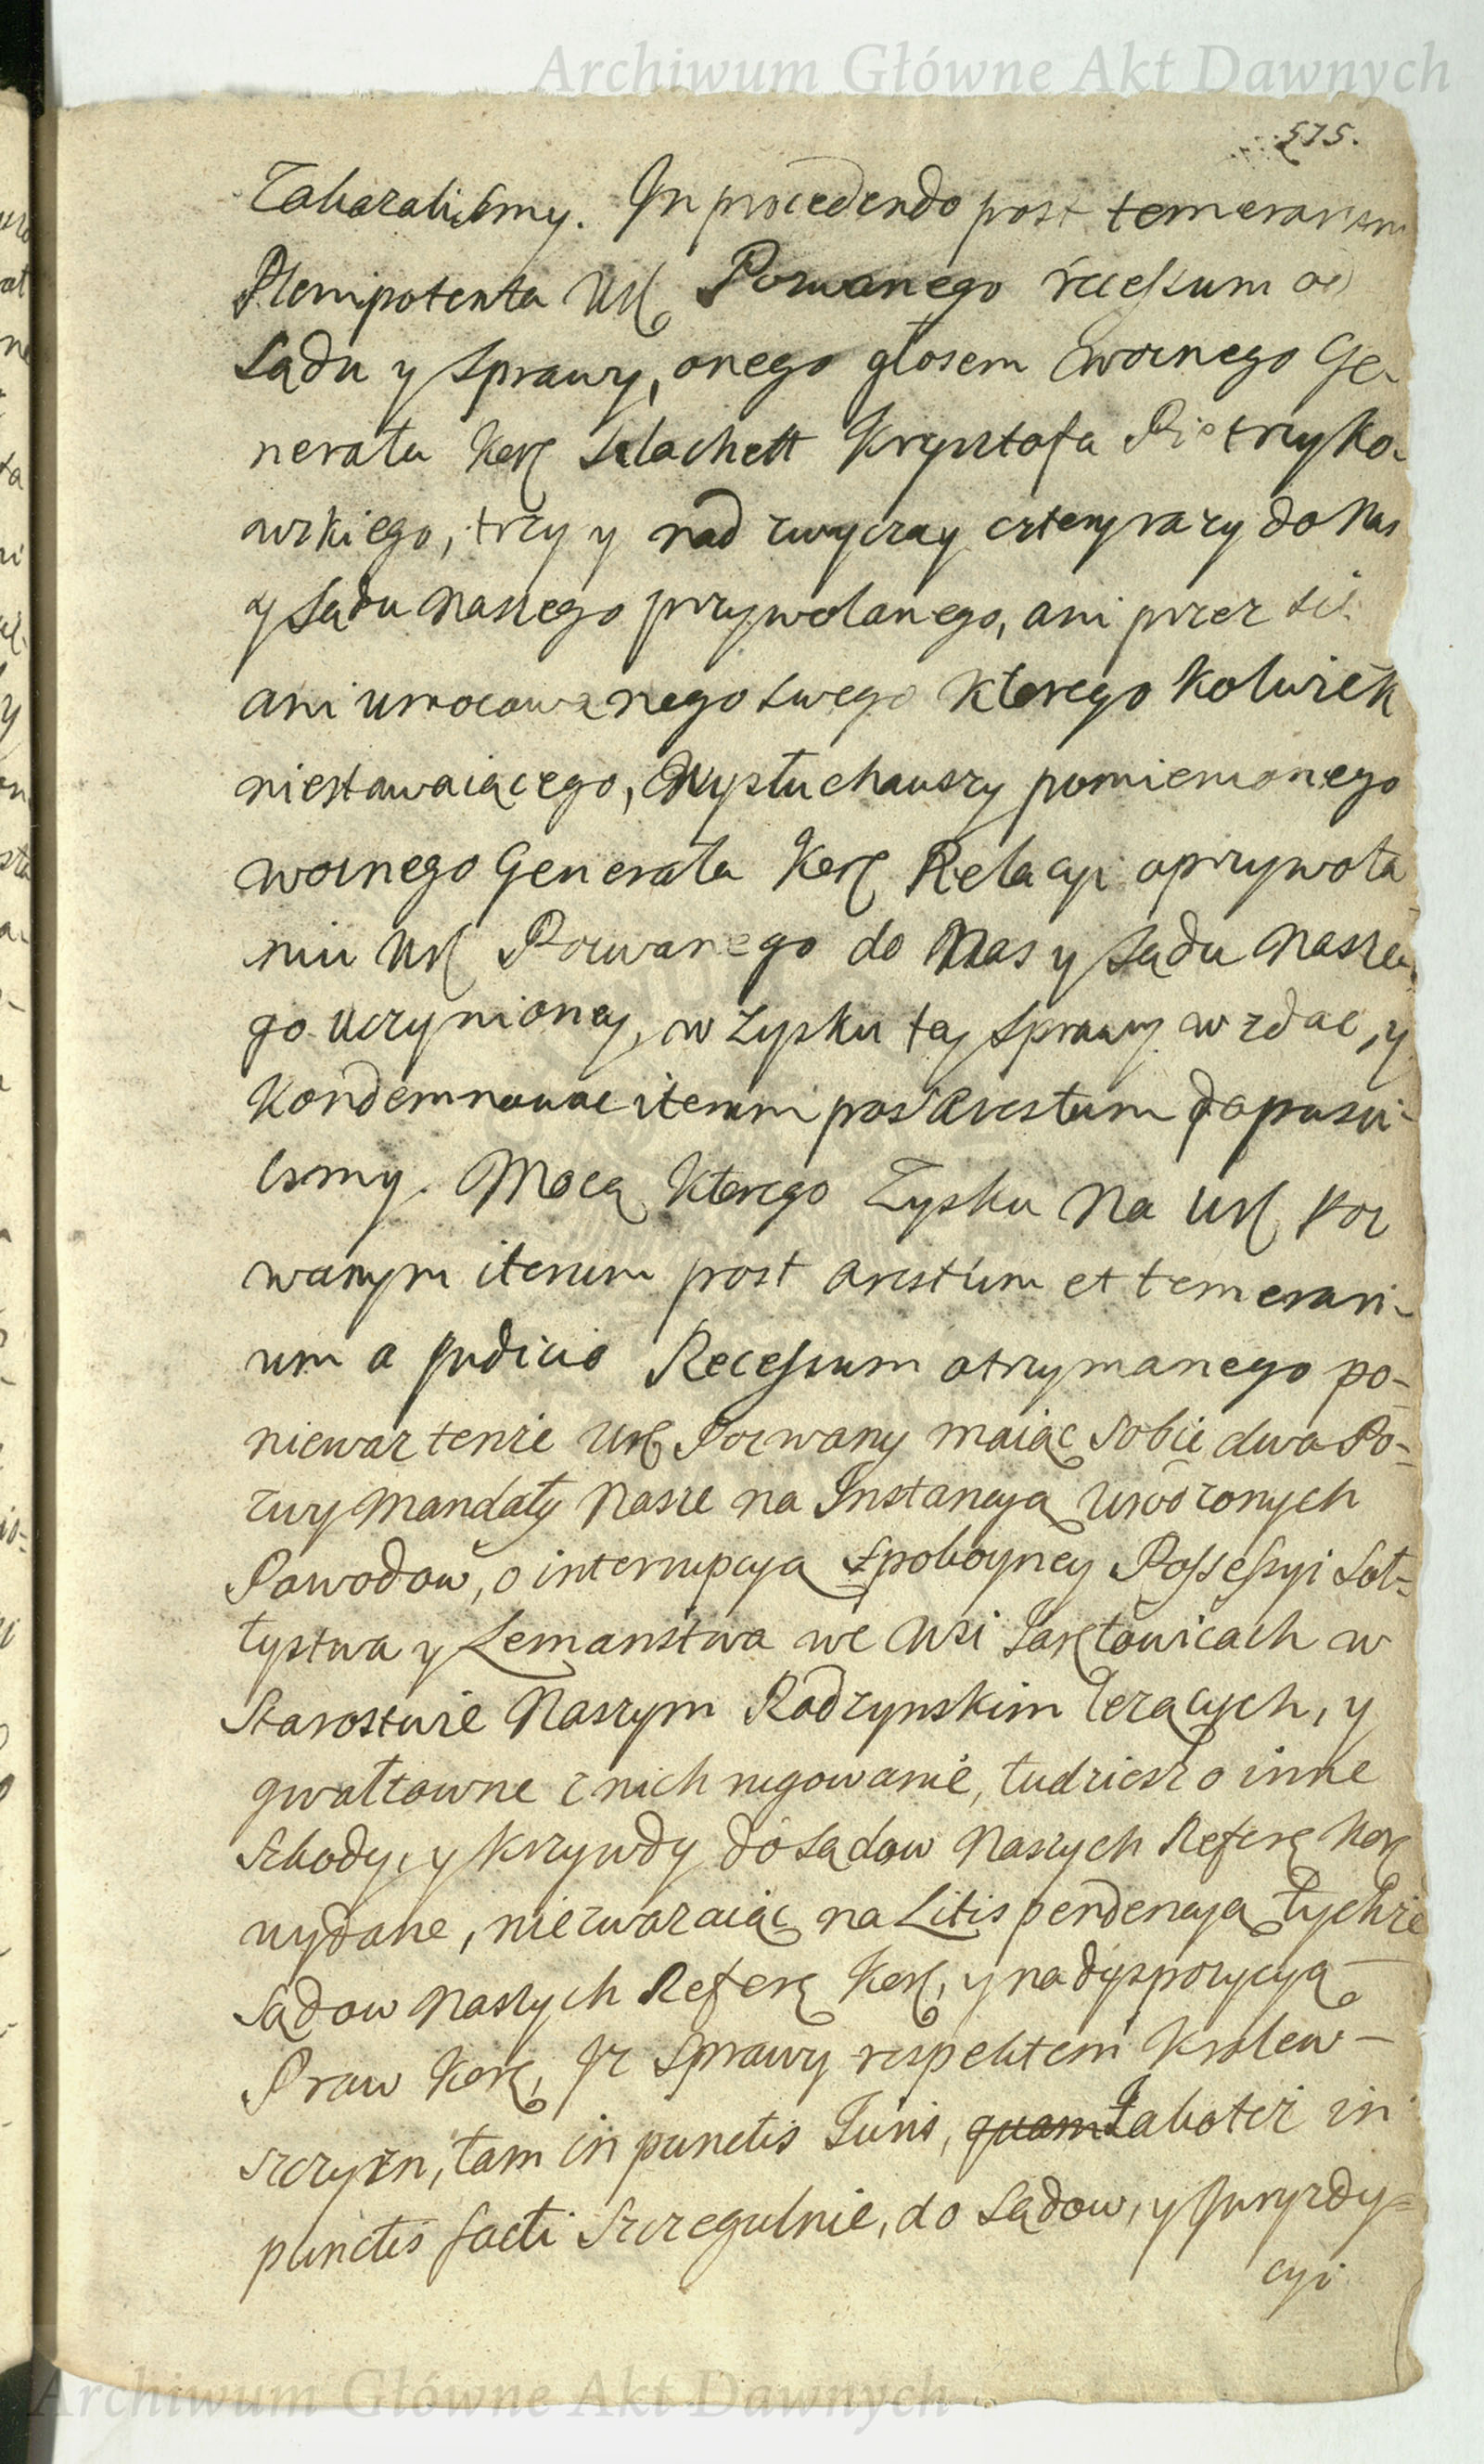 Archiwum Główne Akt Dawnych
575.
Zakazaliśmy. In procedendo post temerarium
Plenipotenta Ur. Pozwanego recessum od
Sądu y Sprawy, onego głosem woznego Ge-
nerała Kor. Szlachett Krysztofa Pietrzyko-
wskiego, trzy y nad zwyczay cztery razy do Nas
y Sądu Naszego przywołanego, ani przez się
ani umocowanego swego ktorego kolwiek
niestawaiącego, Wysłuchawszy pomienionego
woznego Generała Kor. Relacyi o przywoła
niu Ur. Pozwanego do Nas y Sądu Nasze-
go uczynioney, w Zysku tey Sprawy wzdac, y
Kondemnowac iterum post arestum dopusci-
lismy. Mocą ktorego Zysku na Ur. Poz
wanym iterum post arestum et temerari-
um a Judicio Recessum otrzymanego po-
niewaz tenze Ur. Pozwany maiąc sobie dwa Po-
zwy Mandaty Nasze na Instancyą Urodzonych
Powodow, o interrupcyą spokoyney Possessyi Soł-
tystwa y Lemanstwa we Wsi w
Starostwie Naszym Radzynskim lezących, y
gwałtowne z nich rugowanie, tudziesz o inne
Szkody, y krzywdy do Sądow Naszych Refer. Kor.
wydane, niezwazaiąc na Litispendencyą tychze
Sądow Naszych Refer. Kor., y na dyspozycyą
Praw Kor., Iz Sprawy respektem Krolew-
szczyzn, tam in punctis Juris, quam Jakotez in
punctis facti Szczegulnie, do Sądow, y Juryzdy-
cyi
Archiwum Główne Akt Dawnych